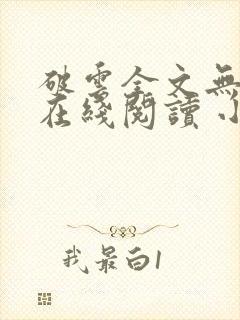 破雲全文無
在綫閱讀 小
我最白1